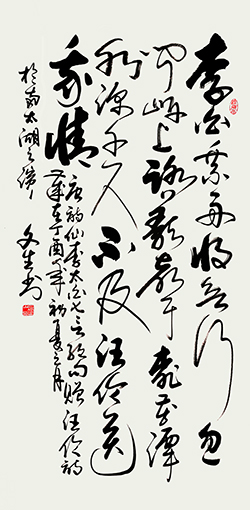 李白乘舟将欲行忽
闻岸上踏歌声桃花潭
水深千尺不及汪伦送
我情
唐诗仙李太白七言绝句赠汪伦诗
岁在丁酉年初夏之月
于南太湖之滨
文生书